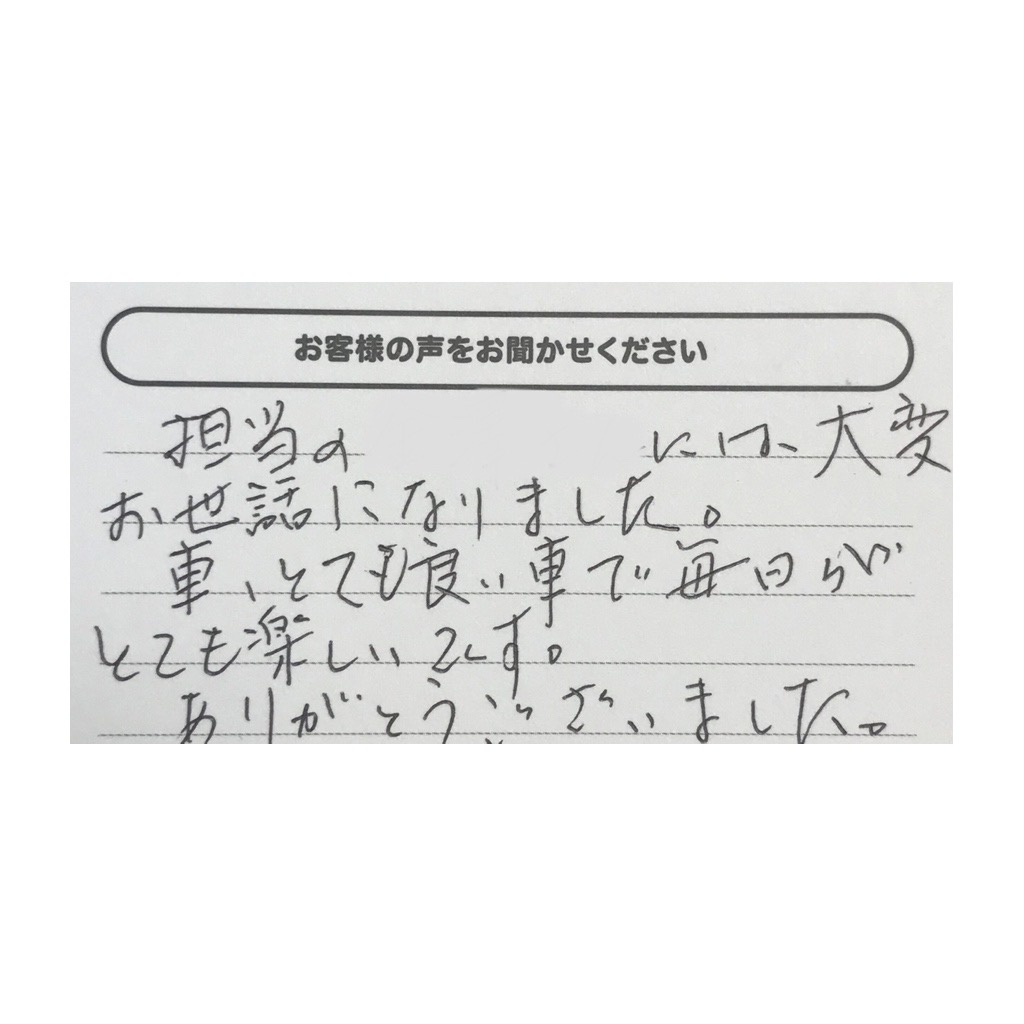 お客様の声をお聞かせください
担当の には、大変
お世話になりました。
車、とても良い車で毎日が
とても楽しいです。
ありがとうございました。